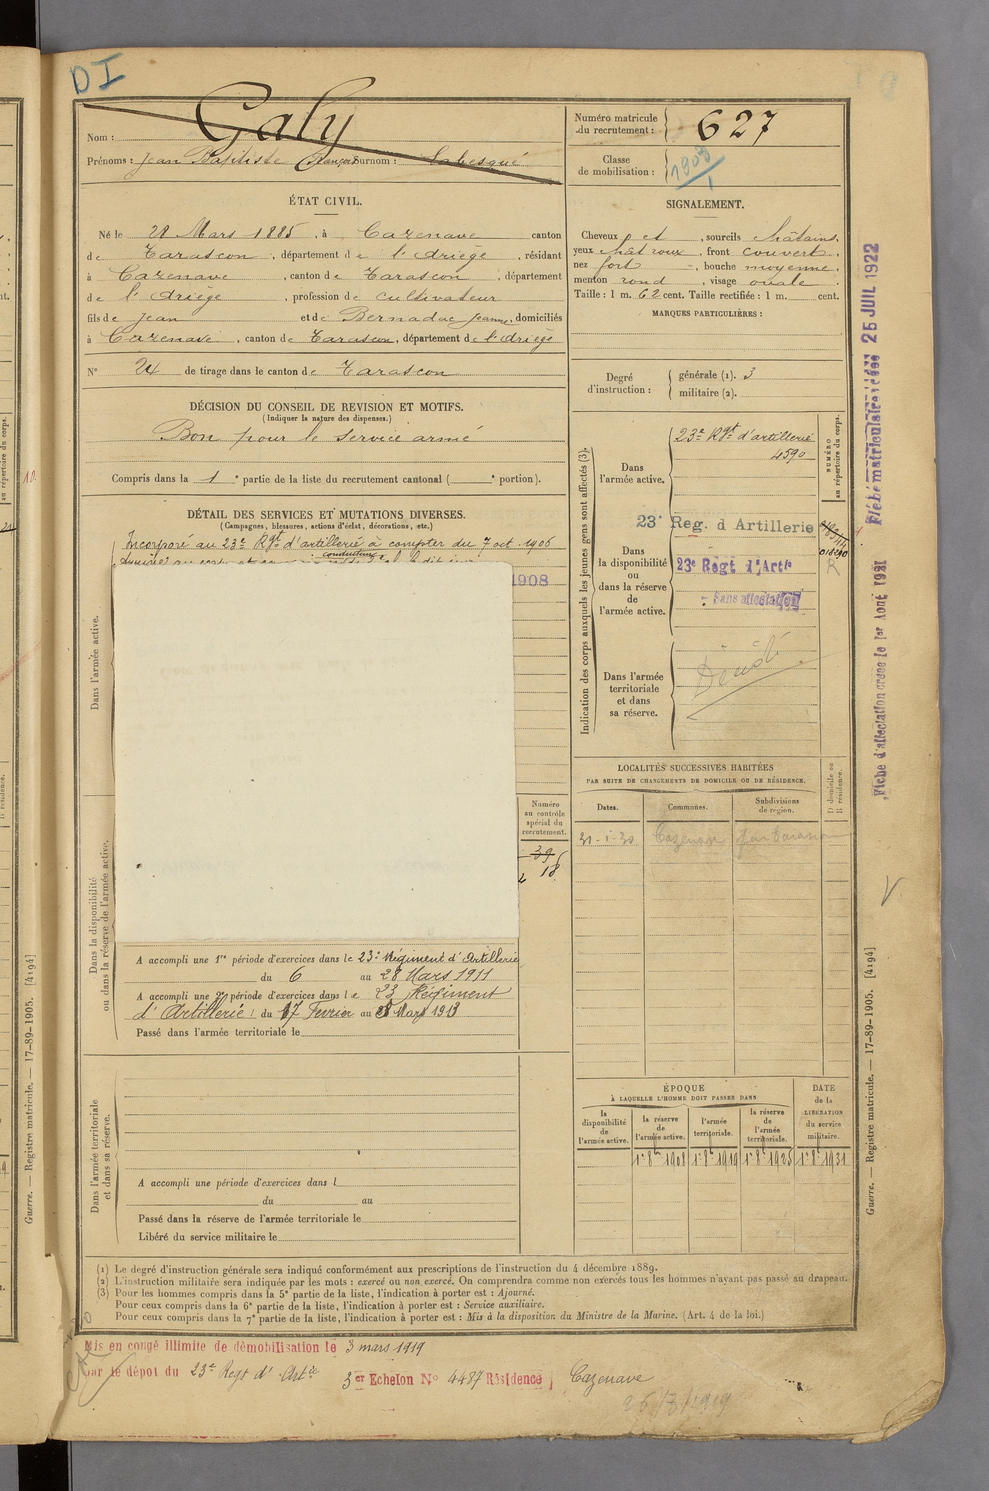 DI
Nom : Galy
Prénoms : Jean Baptiste François Surnom :
Numéro matricule du recrutement : 627
Classe de mobilisation :
ÉTAT CIVIL.
Né le 28 Mars 1885, à Cazenave canton
de Tarascon, département de l'Ariège, résidant
à Cazenave, canton de Tarascon, département
de l'Ariège, profession de cultivateur
fils de Jean et de Bernadac Jeanne, domiciliés
à Cazenave, canton de Tarascon, département de l'Ariège
N° 24 de tirage dans le canton de Tarascon
SIGNALEMENT.
Cheveux et , sourcils châtains,
yeux chât roux, front couvert,
nez fort, bouche moyenne,
menton rond, visage ovale.
Taille : 1 m. 62 cent. Taille rectifiée : 1 m. cent.
MARQUES PARTICULIÈRES :
Degré d'instruction : générale (1). 3
militaire (2).
DÉCISION DU CONSEIL DE REVISION ET MOTIFS.
(Indiquer la nature des dispenses.)
Bon pour le service armé
Compris dans la 1e partie de la liste du recrutement cantonal ( e portion).
DÉTAIL DES SERVICES ET MUTATIONS DIVERSES.
(Campagnes, blessures, actions d'éclat, décorations, etc.)
Incorporé au 23e Rgt d'artillerie à compter du 7 oct. 1906
conducteur
1908
Dans l'armée active.
Dans la disponibilité ou dans la réserve de l'armée active.
Numéro au contrôle spécial du recrutement.
39
18
A accompli une 1re période d'exercices dans le 23e Régiment d'Artillerie
du 6 au 28 Mars 1911
A accompli une 2e période d'exercices dans le 23 Régiment
d'Artillerie du 17 Fevrier au Mars 1913
Passé dans l'armée territoriale le
Dans l'armée territoriale et dans sa réserve.
A accompli une période d'exercices dans l
du au
Passé dans la réserve de l'armée territoriale le
Libéré du service militaire le
Indication des corps auxquels les jeunes gens sont affectés (3).
NUMÉRO au répertoire du corps.
Dans l'armée active.
23e Rgt d'artillerie
4590
Dans la disponibilité ou dans la réserve de l'armée active.
23e Reg. d Artillerie
23e Regt d'Artie
Sans affectation
R
Dans l'armée territoriale et dans sa réserve.
LOCALITÉS SUCCESSIVES HABITÉES
PAR SUITE DE CHANGEMENTS DE DOMICILE OU DE RÉSIDENCE.
Dates. Communes. Subdivisions de région. D domicile ou R résidence.
Cazenave
ÉPOQUE
À LAQUELLE L'HOMME DOIT PASSER DANS
la disponibilité de l'armée active. la réserve de l'armée active. l'armée territoriale. la réserve de l'armée territoriale. DATE de la LIBÉRATION du service militaire.
1er 8bre 1908 1er 8bre 1919 1er 8bre 1925 1er 8bre 1931
(1) Le degré d'instruction générale sera indiqué conformément aux prescriptions de l'instruction du 4 décembre 1889.
(2) L'instruction militaire sera indiquée par les mots : exercé ou non exercé. On comprendra comme non exercés tous les hommes n'ayant pas passé au drapeau.
(3) Pour les hommes compris dans la 5e partie de la liste, l'indication à porter est : Ajourné.
Pour ceux compris dans la 6e partie de la liste, l'indication à porter est : Service auxiliaire.
Pour ceux compris dans la 7e partie de la liste, l'indication à porter est : Mis à la disposition du Ministre de la Marine. (Art. 4 de la loi.)
Mis en congé illimité de démobilisation le 3 mars 1919
par le dépôt du 23e Regt d'Artie 3er Echelon N° 4487 Résidence Cazenave
Fiche d'affectation creee le 1er Aout 1921
25 JUIL 1922
Guerre. — Registre matricule. — 17-89-1905. [4194]
Guerre. — Registre matricule. — 17-89-1905. [4194]